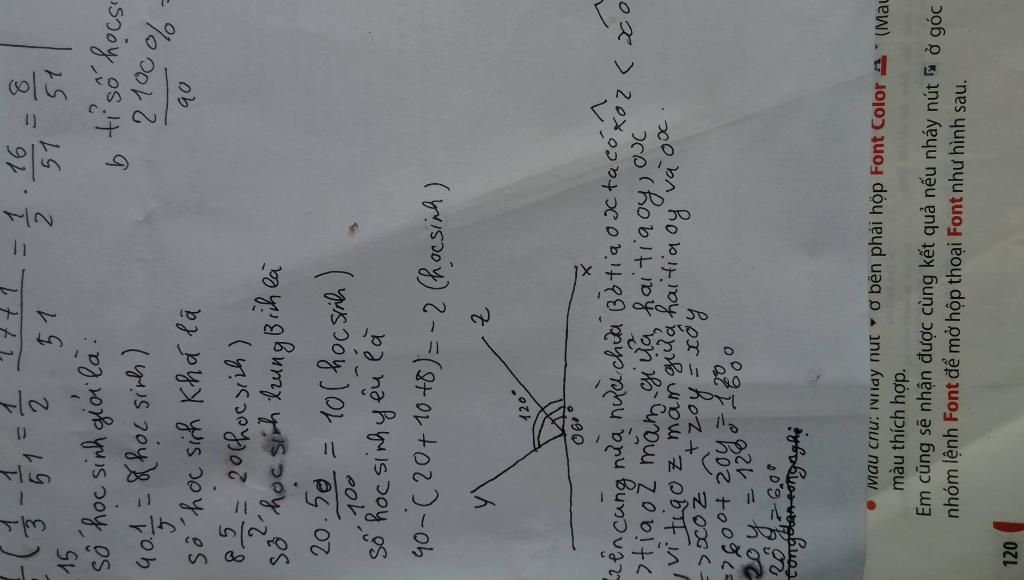 (1/3 - 1/51 = 1/2 17+1/51 = 1/2 . 16/51 = 8/51
15
số học sinh giỏi là:
40 1/5 = 8(học sinh)
số học sinh khá là
8 5/2 = 20(học sinh)
số học sinh trung Bình là
20 . 50/100 = 10(học sinh)
số học sinh yếu là
40 - (20 + 10 + 8) = 2 (học sinh)
b tỉ số học si
2 100 % =
40
y
z
120°
O 60°
x
trên cùng nửa
Bờ tia o x ta có xoz < xo
> tia o z nằm giữa hai tia oy, ox
/ vì tia o z nằm giữa hai tia oy và ox
=> xoz + zoy = xoy
=> 60° + zoy = 120°
zoy = 120° - 60°
zoy = 60°
ở bên phải hộp Font Color A (Màu
màu thích hợp.
Em cũng sẽ nhận được cùng kết quả nếu nháy nút ở góc
nhóm lệnh Font để mở hộp thoại Font như hình sau.
120